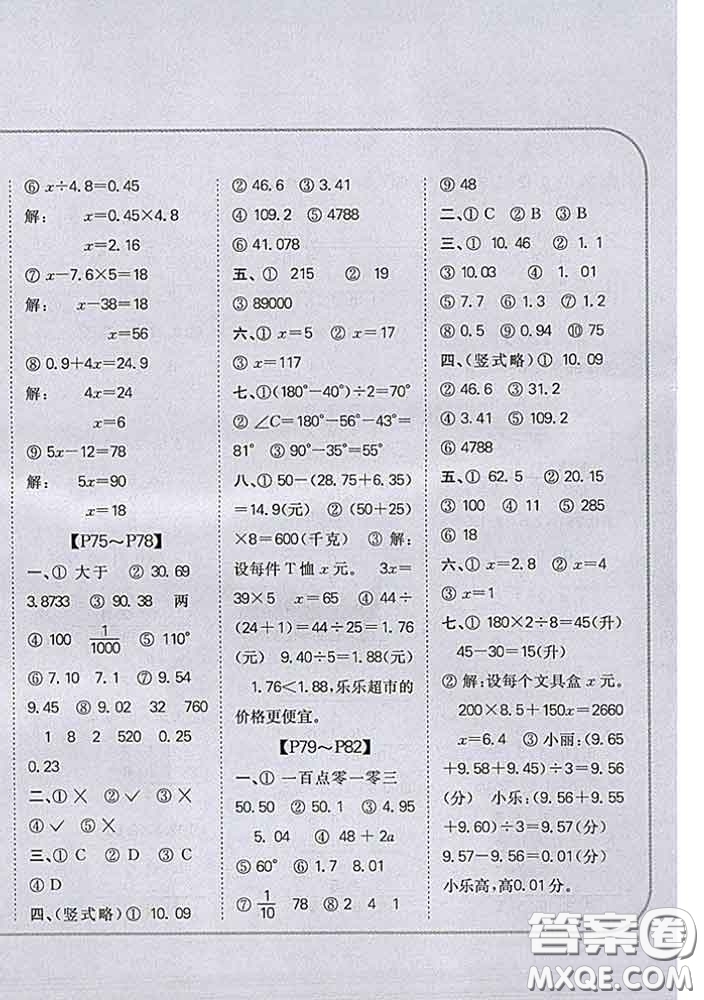 ⑥ x÷4.8=0.45
解： x=0.45×4.8
x=2.16
⑦ x−7.6×5=18
解： x−38=18
x=56
⑧ 0.9+4x=24.9
解： 4x=24
x=6
⑨ 5x−12=78
解： 5x=90
x=18
【P75～P78】
一、① 大于 ② 30.69
3.8733 ③ 90.38 两
④ 100 1/1000 ⑤ 110°
⑥ 7.10 7.1 ⑦ 9.50
9.45 ⑧ 9.02 32 760
1 8 2 520 0.25
0.23
二、① ✕ ② ✓ ③ ✕
④ ✓ ⑤ ✕
三、① C ② D ③ C
④ D
四、（竖式略）① 10.09
② 46.6 ③ 3.41
④ 109.2 ⑤ 4788
⑥ 41.078
五、① 215 ② 19
③ 89000
六、① x=5 ② x=17
③ x=117
七、①(180°−40°)÷2=70°
② ∠C=180°−54°−45°=
81° ③ 90°−35°=55°
八、① 50−(28.75+6.35)
=14.9(元) ② (50+25)
×8=600(千克) ③ 解：
设每件 T 恤 x 元。 3x=
39×5 x=65 ④ 44÷
(24+1)=44÷25=1.76
(元) 9.40÷5=1.88(元)
1.76<1.88,乐乐超市的
价格更便宜。
【P79～P82】
一、① 一百点零一零三
50.50 ② 50.1 ③ 4.95
5.04 ④ 48+2a
⑤ 60° ⑥ 1.7 8.01
⑦ 1/10 78 ⑧ 2 4 1
⑨ 48
二、① C ② B ③ B
三、① 10.46 ② 1.1
③ 10.03 ④ 1.01
⑤ 7.7 ⑥ 1.3 ⑦ 1.2
⑧ 0.5 ⑨ 0.94 ⑩ 75
四、（竖式略）① 10.09
② 46.6 ③ 31.2
④ 3.41 ⑤ 109.2
⑥ 4788
五、① 62.5 ② 20.15
③ 100 ④ 11 ⑤ 285
⑥ 18
六、① x=2 ② x=0.8
③ x=1
七、① 180×2÷8=45(升)
45−30=15(升)
② 解：设每个文具盒 x 元。
200×8.5+150x=2660
x=6.4 ③ 小丽：(9.65
+9.58+9.44)÷3=9.56
(分) 小乐：(9.56+9.55
+9.60)÷3=9.57(分)
9.57−9.56=0.01(分)
小乐高,高0.01分。
答案圈
MXQE.COM